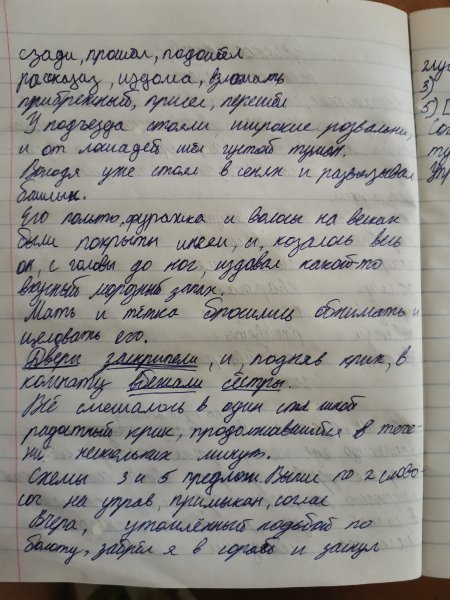 сзади, прошёл, подошёл
рассказ, издома, взломать
прибрежный, присел, перешёл
У подъезда стояли широкие розвальни,
и от лошадей шёл густой туман.
Володя уже стоял в сенях и развязывал
башлык.
Его пальто, фуражка и волосы на висках
были покрыты инеем, и, казалось весь
он, с головы до ног, издавал какой-то
вкусный морозный запах.
Мать и тётка бросились обнимать и
целовать его.
Двери заскрипели, и, подняв крик, в
комнату вбежали сёстры.
Всё смешалось в один сплошной
радостный крик, продолжавшийся в тече-
нии нескольких минут.
Схемы 3 и 5 предлож. Выпис по 2 слово-
соч на управ, примыкан, соглас
Вчера, утомлённый ходьбой по
болоту, забрёл я в сарай и заснул
3)
5) [